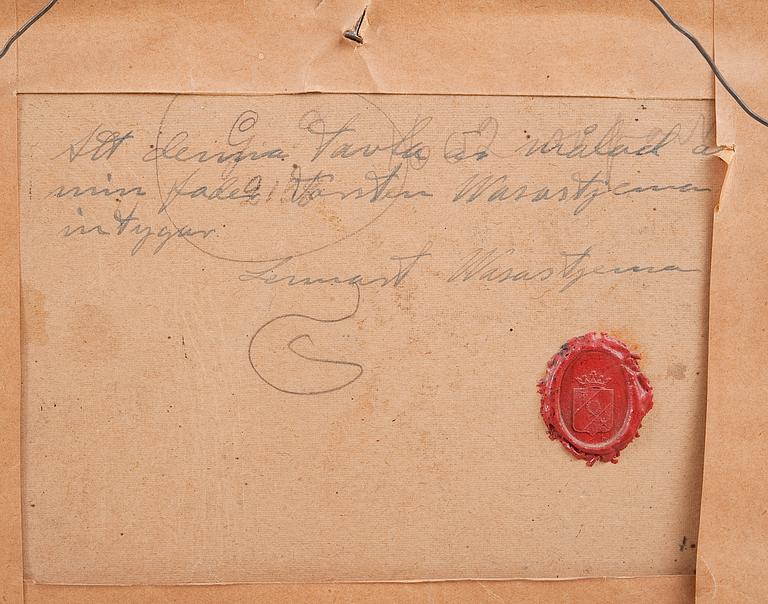 Att denna tavla är målad a
min fader Torsten Wasastjerna
intygar
Lennart Wasastjerna